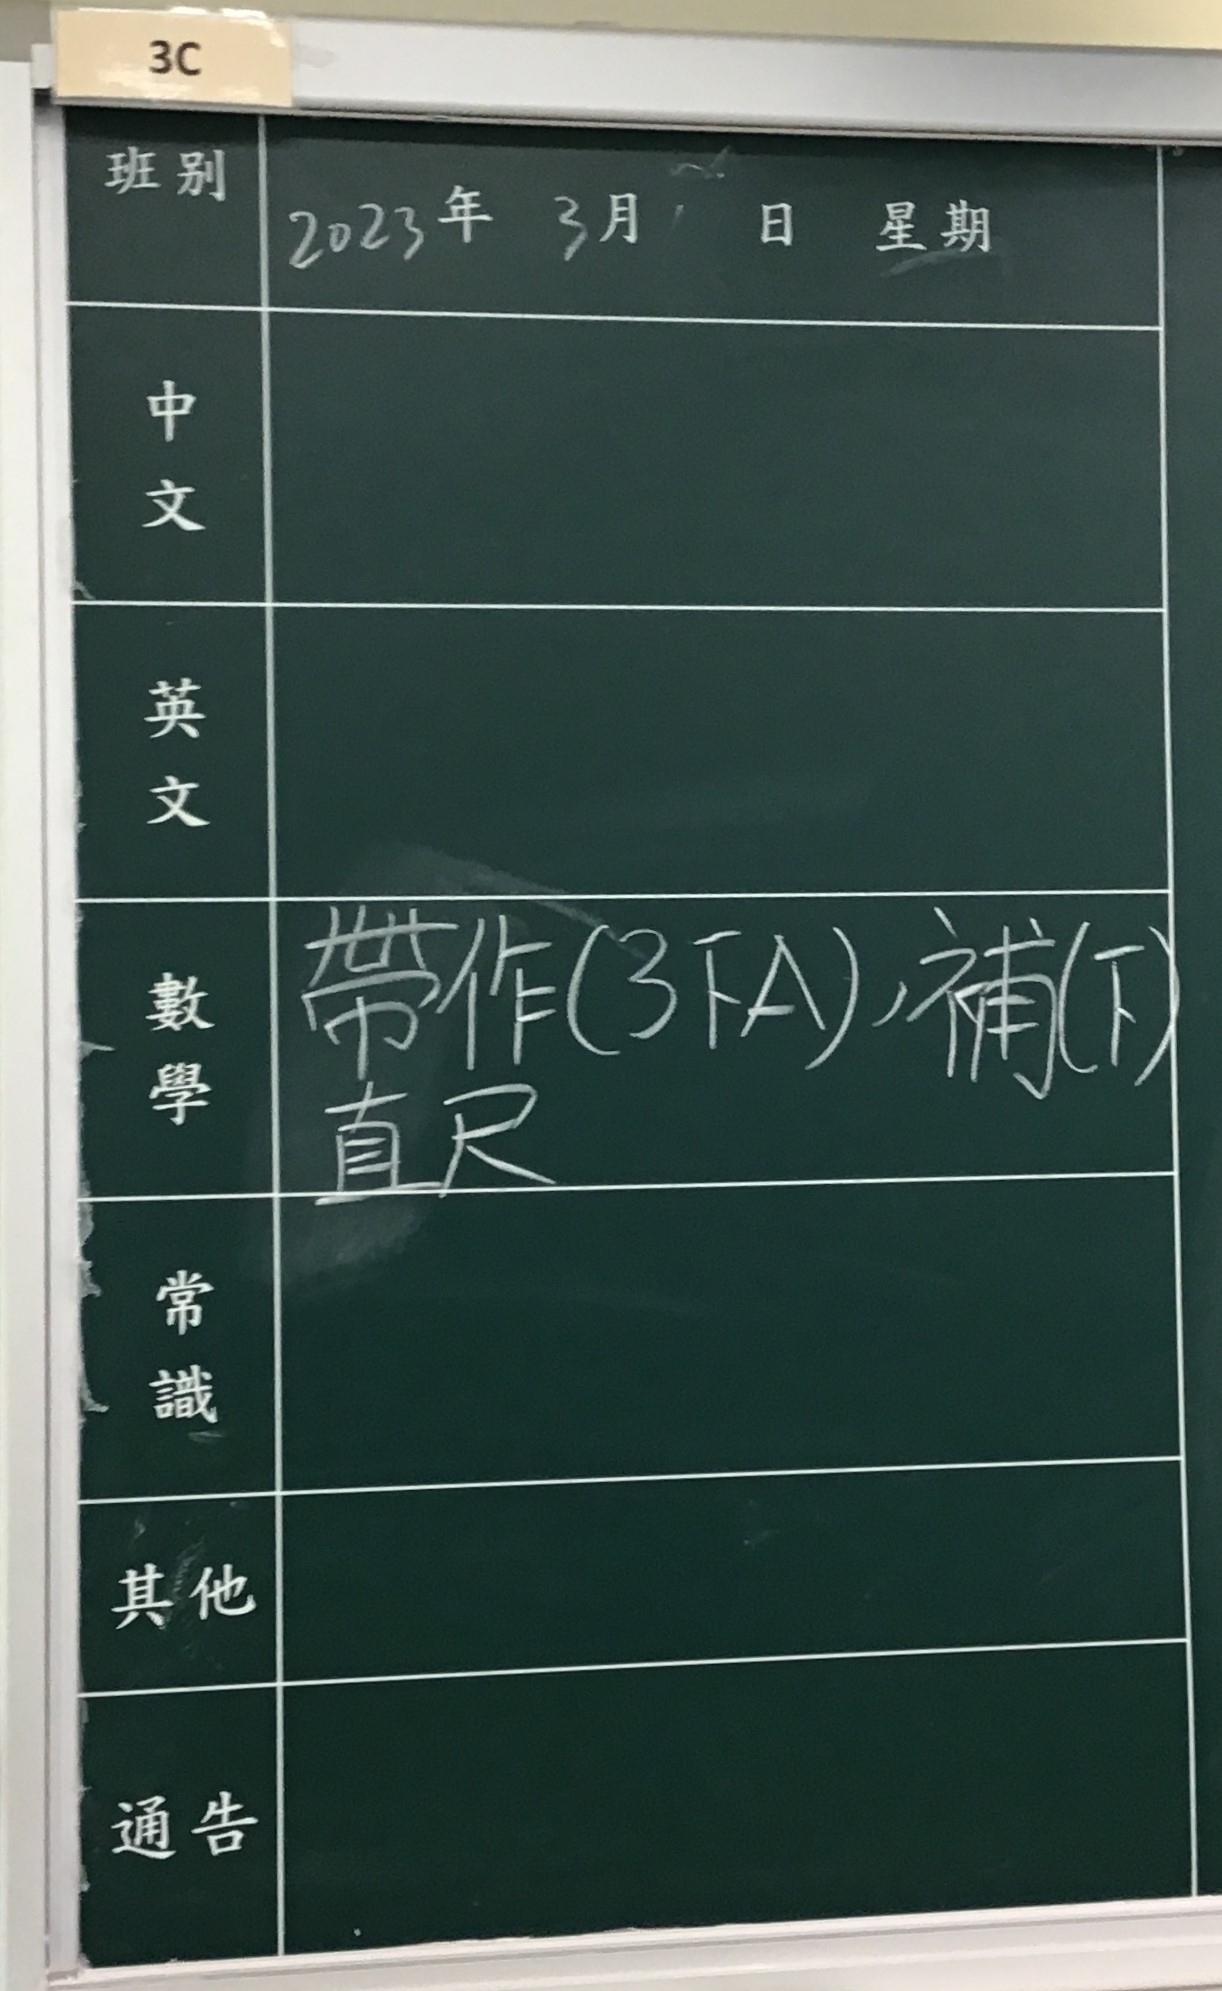 3C
班別
2023年 3月 日 星期
中文
英文
數學
帶作(3下A)、補(下)
直尺
常識
其他
通告